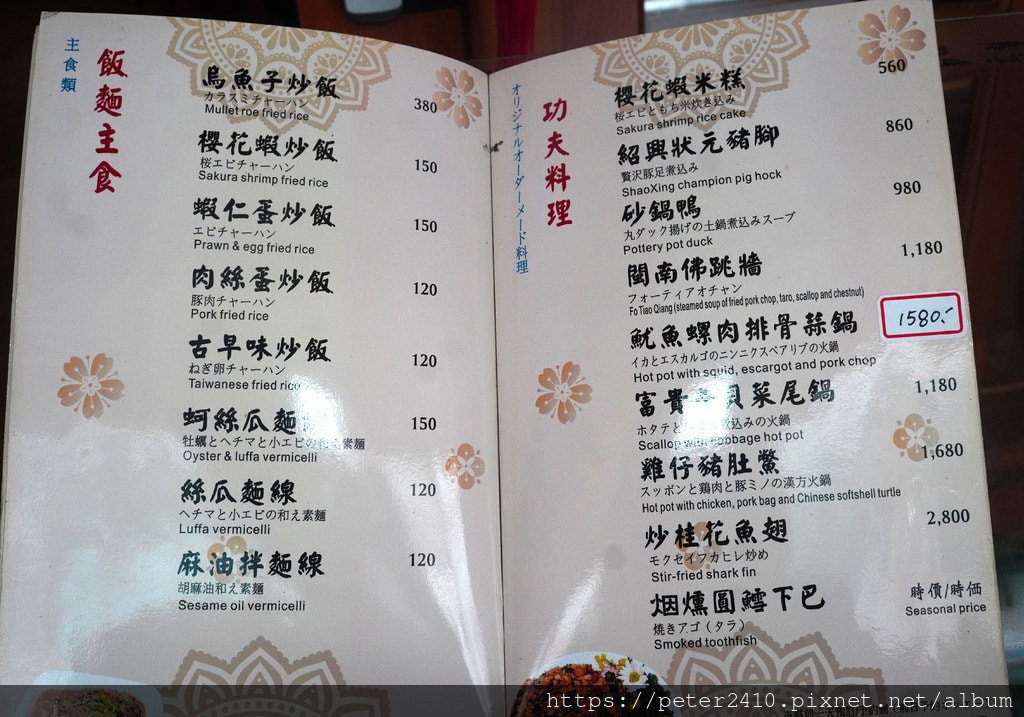 主食類
飯麵主食
烏魚子炒飯 380
カラスミチャーハン
Mullet roe fried rice
櫻花蝦炒飯 150
桜エビチャーハン
Sakura shrimp fried rice
蝦仁蛋炒飯 150
エビチャーハン
Prawn & egg fried rice
肉絲蛋炒飯 120
豚肉チャーハン
Pork fried rice
古早味炒飯 120
ねぎ卵チャーハン
Taiwanese fried rice
蚵絲瓜麵 150
牡蠣とヘチマと小エビの和え素麺
Oyster & luffa vermicelli
絲瓜麵線 120
ヘチマと小エビの和え素麺
Luffa vermicelli
麻油拌麵線 120
胡麻油和え素麺
Sesame oil vermicelli
オリジナルオーダーメード料理
功夫料理
櫻花蝦米糕 560
桜エビともち米炊き込み
Sakura shrimp rice cake
紹興狀元豬腳 860
贅沢豚足煮込み
ShaoXing champion pig hock
砂鍋鴨 980
丸ダック揚げの土鍋煮込みスープ
Pottery pot duck
閩南佛跳牆 1,180
フォーティアオチャン
Fo Tiao Qiang (steamed soup of fried pork chop, taro, scallop and chestnut)
魷魚螺肉排骨蒜鍋 1580.-
イカとエスカルゴのニンニクスペアリブの火鍋
Hot pot with squid, escargot and pork chop
富貴 貝菜尾鍋 1,180
ホタテと 煮込みの火鍋
Scallop with cabbage hot pot
雞仔豬肚鱉 1,680
スッポンと鶏肉と豚ミノの漢方火鍋
Hot pot with chicken, pork bag and Chinese softshell turtle
炒桂花魚翅 2,800
モクセイフカヒレ炒め
Stir-fried shark fin
烟燻圓鱈下巴 時價/時価
焼きアゴ（タラ） Seasonal price
Smoked toothfish
https://peter2410.pixnet.net/album